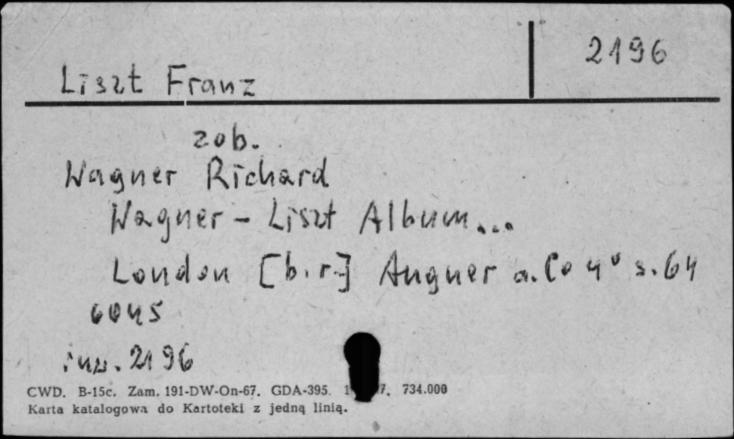 2196
Liszt Franz
zob.
Wagner Richard
Wagner - Liszt Album...
London [b.r.] Augner a. Co 4° s. 64
6045
inw. 2196
CWD. B-15c. Zam. 191-DW-On-67. GDA-395. 734.000
Karta katalogowa do Kartoteki z jedną linią.